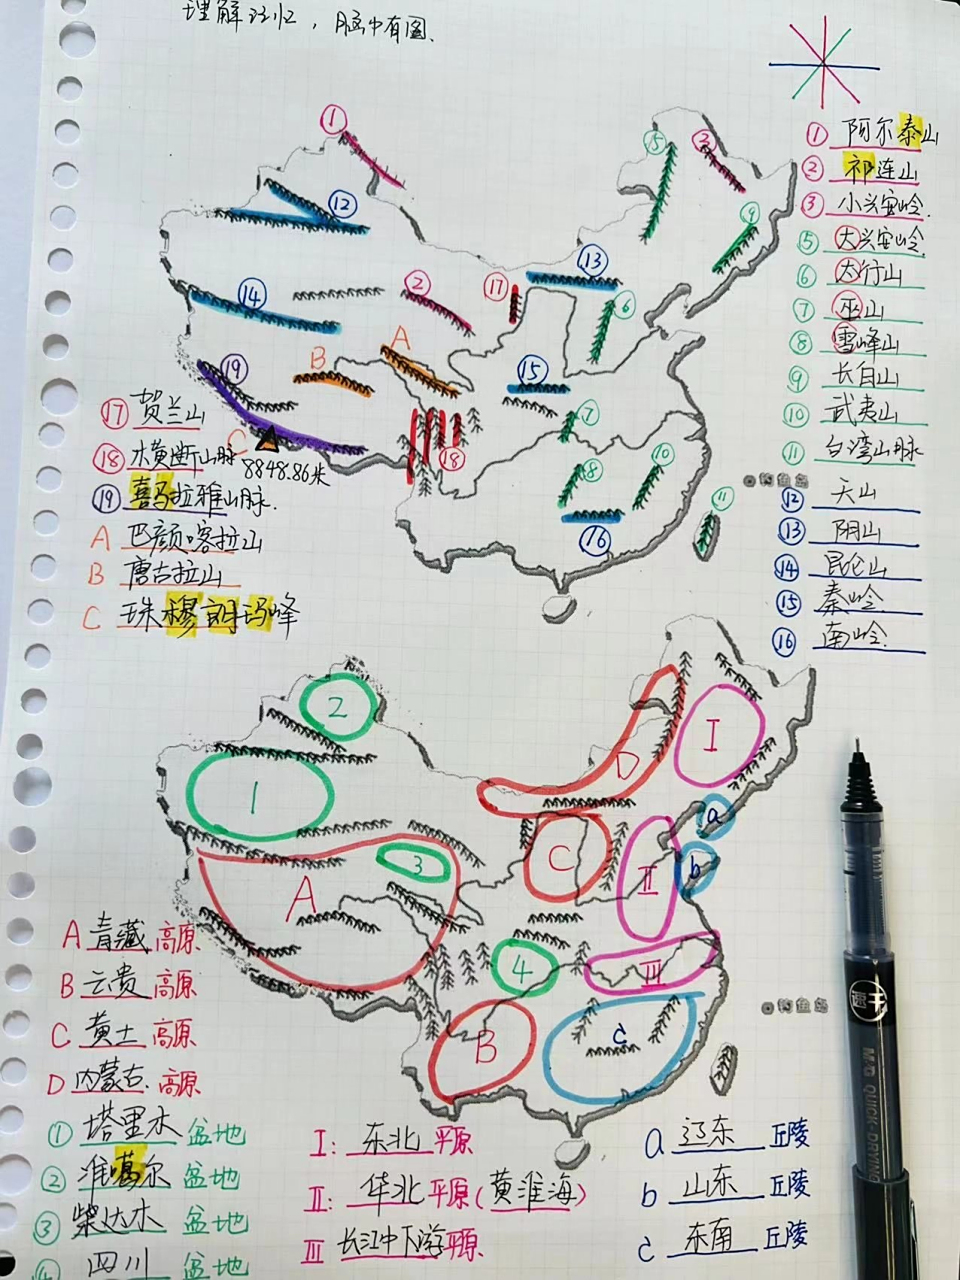 理解记忆，脑中有图.
① 阿尔泰山
② 祁连山
③ 小兴安岭.
⑤ 大兴安岭.
⑥ 太行山
⑦ 巫山
⑧ 雪峰山
⑨ 长白山
⑩ 武夷山
⑪ 台湾山脉
⑫ 天山
⑬ 阴山
⑭ 昆仑山
⑮ 秦岭.
⑯ 南岭.
⑰ 贺兰山
⑱ 横断山脉
⑲ 喜马拉雅山脉.
A 巴颜喀拉山
B 唐古拉山
C 珠穆朗玛峰
①
⑤
②
⑫
⑨
⑬
⑭
②
⑰
⑥
A
B
⑲
⑮
C
8848.86米
⑱
⑦
⑧
⑩
⑪
⑯
钓鱼岛
2
D
I
1
a
C
II
b
3
A
4
III
B
c
钓鱼岛
A 青藏 高原
B 云贵 高原
C 黄土 高原
D 内蒙古. 高原
① 塔里木 盆地
② 准噶尔 盆地
③ 柴达木 盆地
④ 四川 盆地
I: 东北 平原
II: 华北 平原(黄淮海)
III 长江中下游平原.
a 辽东 丘陵
b 山东 丘陵
c 东南 丘陵
M&G QUICK-DRYING